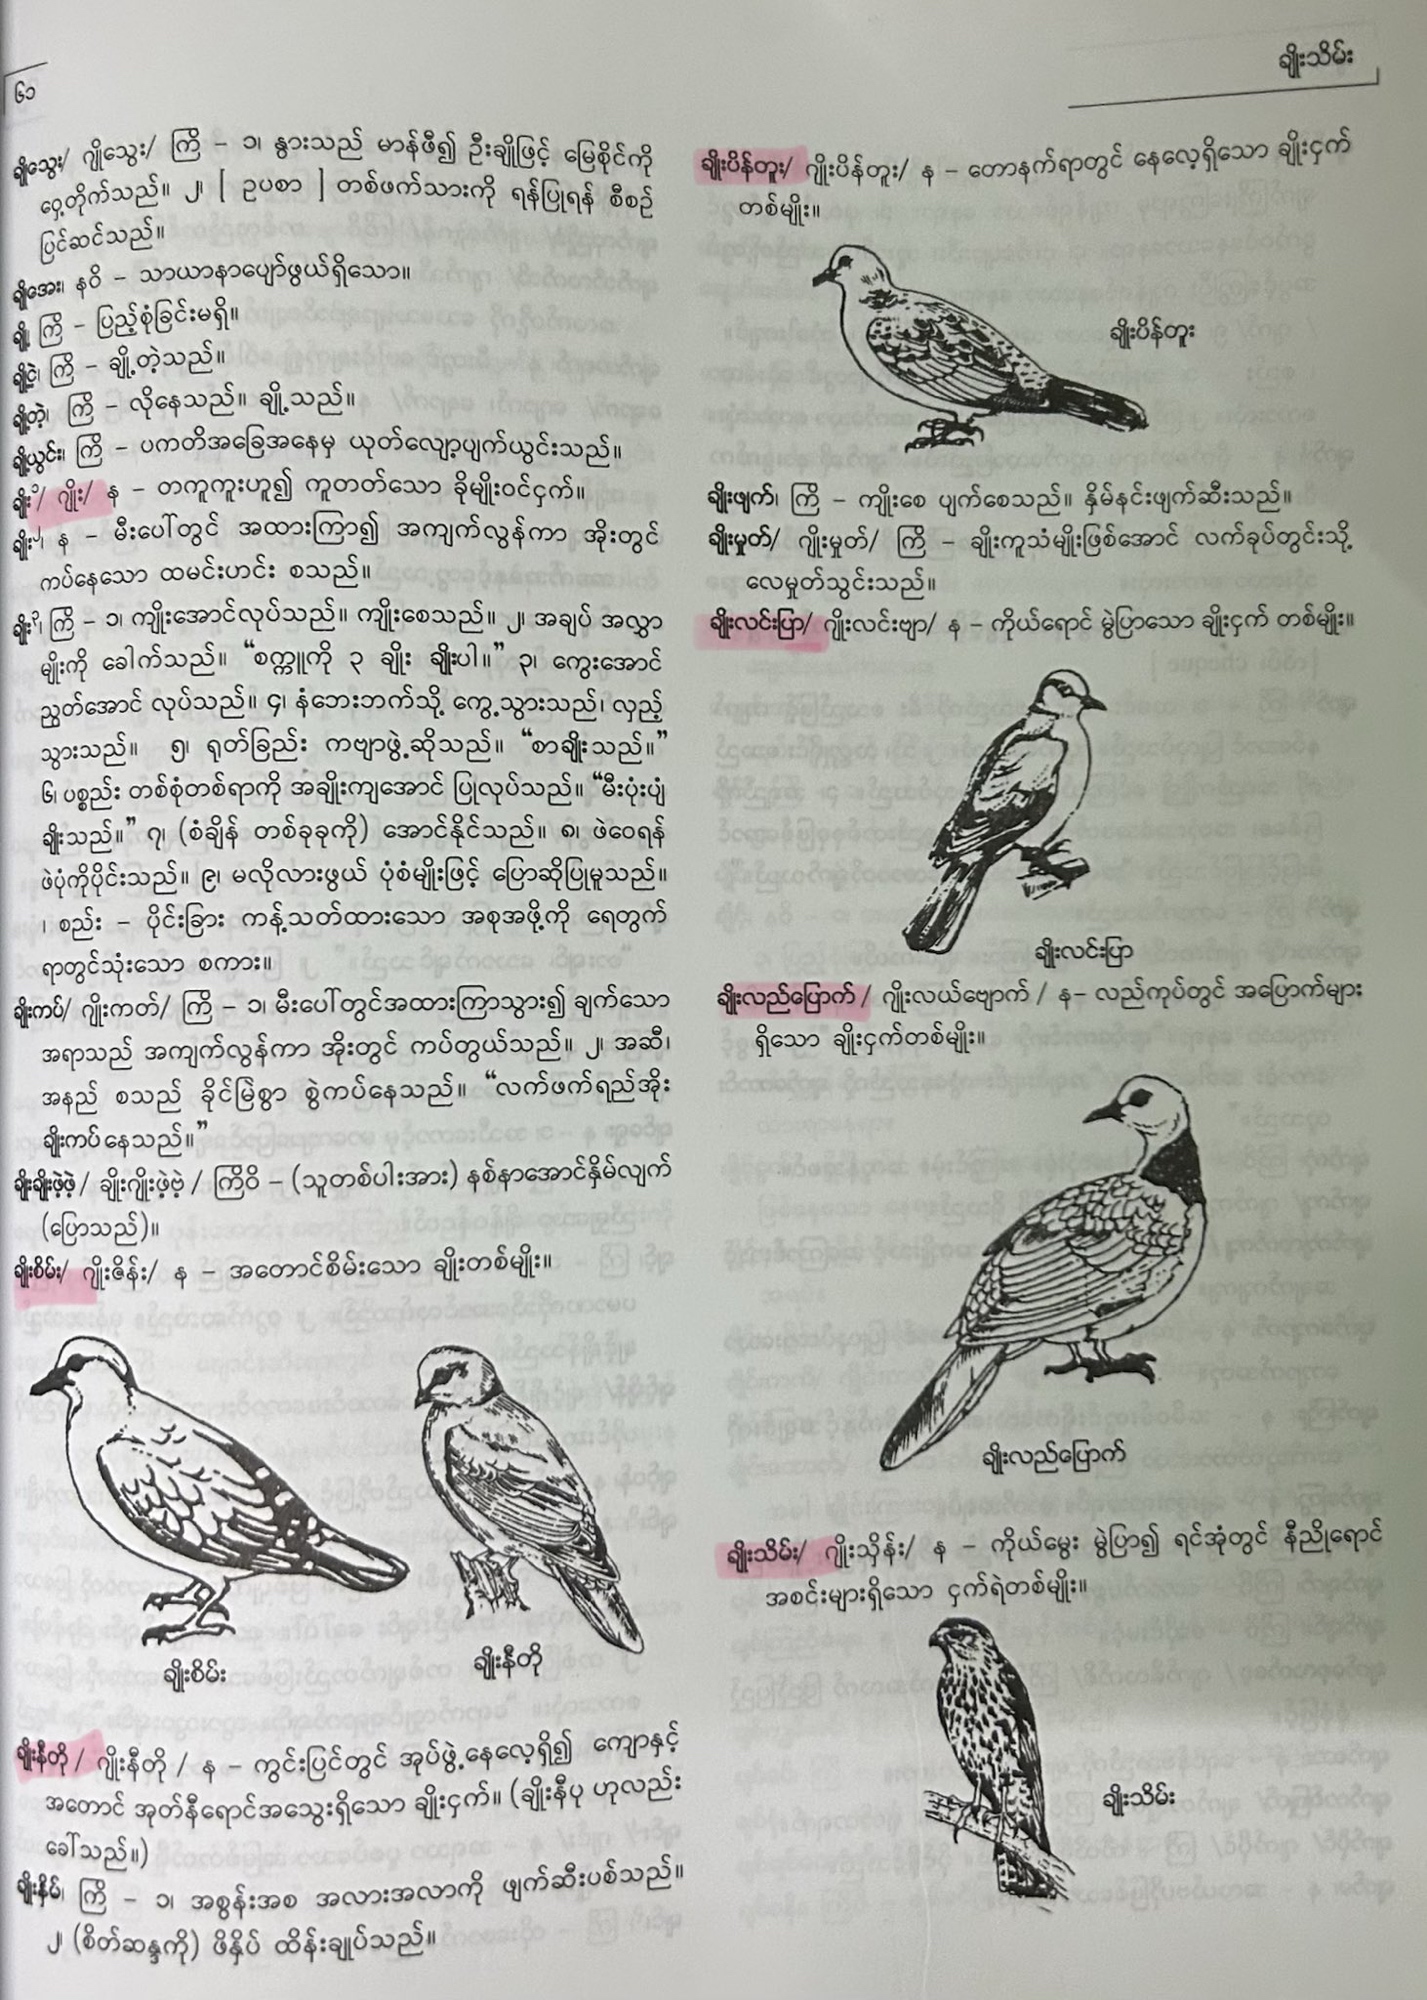 ၆၁
ချိုးသိမ်း
ချိုသွေး/ ဂျိုသွေး/ ကြိ – ၁၊ နွားသည် မာန်ဖီ၍ ဦးချိုဖြင့် မြေစိုင်ကို
ဝှေ့တိုက်သည်။ ၂၊ [ ဥပစာ ] တစ်ဖက်သားကို ရန်ပြုရန် စီစဉ်
ပြင်ဆင်သည်။
ချိုအေး၊ နဝိ – သာယာနာပျော်ဖွယ်ရှိသော။
ချို့၊ ကြိ – ပြည့်စုံခြင်းမရှိ။
ချို့ငဲ့၊ ကြိ – ချို့တဲ့သည်။
ချို့တဲ့၊ ကြိ – လိုနေသည်။ ချို့သည်။
ချို့ယွင်း၊ ကြိ – ပကတိအခြေအနေမှ ယုတ်လျော့ပျက်ယွင်းသည်။
ချိုး၁/ ဂျိုး/ န – တကူကူးဟူ၍ ကူတတ်သော ခိုမျိုးဝင်ငှက်။
ချိုး၂၊ န – မီးပေါ်တွင် အထားကြာ၍ အကျက်လွန်ကာ အိုးတွင်
ကပ်နေသော ထမင်းဟင်း စသည်။
ချိုး၃၊ ကြိ – ၁၊ ကျိုးအောင်လုပ်သည်။ ကျိုးစေသည်။ ၂၊ အချပ် အလွှာ
မျိုးကို ခေါက်သည်။ “စက္ကူကို ၃ ချိုး ချိုးပါ။” ၃၊ ကွေးအောင်
ညွတ်အောင် လုပ်သည်။ ၄၊ နံဘေးဘက်သို့ ကွေ့သွားသည်၊ လှည့်
သွားသည်။ ၅၊ ရုတ်ခြည်း ကဗျာဖွဲ့ဆိုသည်။ “စာချိုးသည်။”
၆၊ ပစ္စည်း တစ်စုံတစ်ရာကို အချိုးကျအောင် ပြုလုပ်သည်။ “မီးပုံးပျံ
ချိုးသည်။” ၇၊ (စံချိန် တစ်ခုခုကို) အောင်နိုင်သည်။ ၈၊ ဖဲဝေရန်
ဖဲပုံကိုပိုင်းသည်။ ၉၊ မလိုလားဖွယ် ပုံစံမျိုးဖြင့် ပြောဆိုပြုမူသည်။
၊ စည်း – ပိုင်းခြား ကန့်သတ်ထားသော အစုအဖို့ကို ရေတွက်
ရာတွင်သုံးသော စကား။
ချိုးကပ်/ ဂျိုးကတ်/ ကြိ – ၁၊ မီးပေါ်တွင်အထားကြာသွား၍ ချက်သော
အရာသည် အကျက်လွန်ကာ အိုးတွင် ကပ်တွယ်သည်။ ၂၊ အဆီ၊
အနည် စသည် ခိုင်မြဲစွာ စွဲကပ်နေသည်။ “လက်ဖက်ရည်အိုး
ချိုးကပ်နေသည်။”
ချိုးချိုးဖဲ့ဖဲ့/ ချိုးဂျိုးဖဲ့ဗဲ့ / ကြိဝိ – (သူတစ်ပါးအား) နစ်နာအောင်နှိမ်လျက်
(ပြောသည်)။
ချိုးစိမ်း/ ဂျိုးဇိန်း/ န – အတောင်စိမ်းသော ချိုးတစ်မျိုး။
ချိုးစိမ်း
ချိုးနီတို
ချိုးနီတို / ဂျိုးနီတို / န – ကွင်းပြင်တွင် အုပ်ဖွဲ့နေလေ့ရှိ၍ ကျောနှင့်
အတောင် အုတ်နီရောင်အသွေးရှိသော ချိုးငှက်။ (ချိုးနီပု ဟုလည်း
ခေါ်သည်။)
ချိုးနှိမ်၊ ကြိ – ၁၊ အစွန်းအစ အလားအလာကို ဖျက်ဆီးပစ်သည်။
၂၊ (စိတ်ဆန္ဒကို) ဖိနှိပ် ထိန်းချုပ်သည်။
ချိုးပိန်တူး/ ဂျိုးပိန်တူး/ န – တောနက်ရာတွင် နေလေ့ရှိသော ချိုးငှက်
တစ်မျိုး။
ချိုးပိန်တူး
ချိုးဖျက်၊ ကြိ – ကျိုးစေ ပျက်စေသည်။ နှိမ်နင်းဖျက်ဆီးသည်။
ချိုးမှုတ်/ ဂျိုးမှုတ်/ ကြိ – ချိုးကူသံမျိုးဖြစ်အောင် လက်ခုပ်တွင်းသို့
လေမှုတ်သွင်းသည်။
ချိုးလင်းပြာ/ ဂျိုးလင်းဗျာ/ န – ကိုယ်ရောင် မွဲပြာသော ချိုးငှက် တစ်မျိုး။
ချိုးလင်းပြာ
ချိုးလည်ပြောက် / ဂျိုးလယ်ဗျောက် / န– လည်ကုပ်တွင် အပြောက်များ
ရှိသော ချိုးငှက်တစ်မျိုး။
ချိုးလည်ပြောက်
ချိုးသိမ်း/ ဂျိုးသိုန်း/ န – ကိုယ်မွေး မွဲပြာ၍ ရင်အုံတွင် နီညိုရောင်
အစင်းများရှိသော ငှက်ရဲတစ်မျိုး။
ချိုးသိမ်း